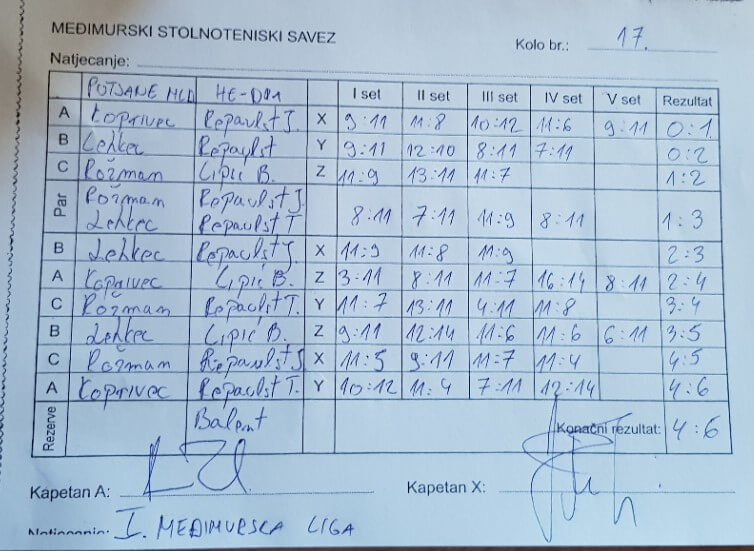 MEĐIMURSKI STOLNOTENISKI SAVEZ
Kolo br.: 17.
Natjecanje:
POTJANE MLD HE-DM I set II set III set IV set V set Rezultat
A Koprivec Repalust J. X 9:11 11:8 10:12 11:6 9:11 0:1
B Lehkec Repalust Y 9:11 12:10 8:11 7:11 0:2
C Rožman Lipić B. Z 11:9 13:11 11:7 1:2
Par Rožman Repalust J.
Lehkec Repalust T 8:11 7:11 11:9 8:11 1:3
B Lehkec Repalust J. X 11:9 11:8 11:9 2:3
A Koprivec Lipić B. Z 3:11 8:11 11:7 16:14 8:11 2:4
C Rožman Repalust T. Y 11:7 13:11 4:11 11:8 3:4
B Lehkec Lipić B. Z 9:11 12:14 11:6 11:6 6:11 3:5
C Rožman Repalust J X 11:5 9:11 11:7 11:4 4:5
A Koprivec Repalust T. Y 10:12 11:4 7:11 12:14 4:6
Rezerve Balent Konačni rezultat: 4:6
Kapetan A: Kapetan X:
Natjecanje: I. MEĐIMURSKA LIGA